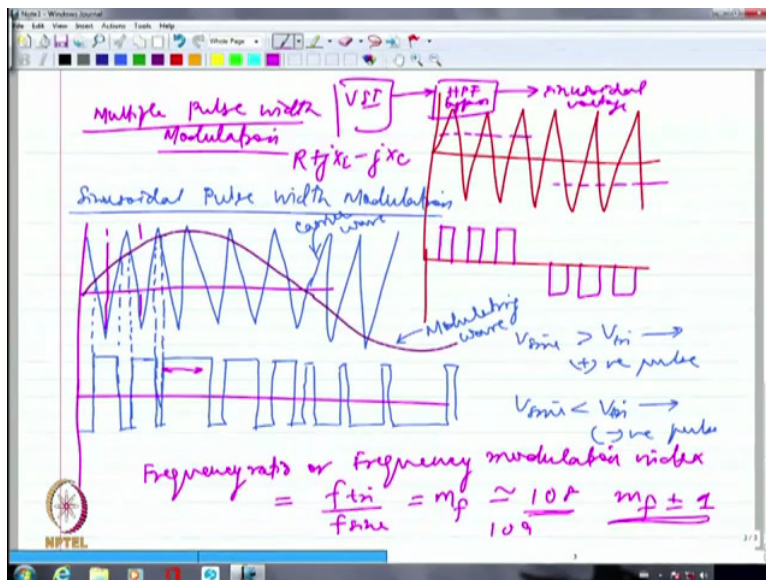 Note1 - Windows Journal
File Edit View Insert Actions Tools Help
Whole Page
Multiple Pulse width
Modulation
VSI
HPF
bypass
sinusoidal
voltage
R + jXL - jXC
Sinusoidal Pulse Width Modulation
carrier
wave
Modulating
wave
Vsine > Vtri →
(+)ve pulse
Vsine < Vtri →
(-)ve pulse
Frequency ratio or Frequency modulation index
= ftri / fsine = mf ≃ 108 mf ± 1
109
NPTEL
3/3
3